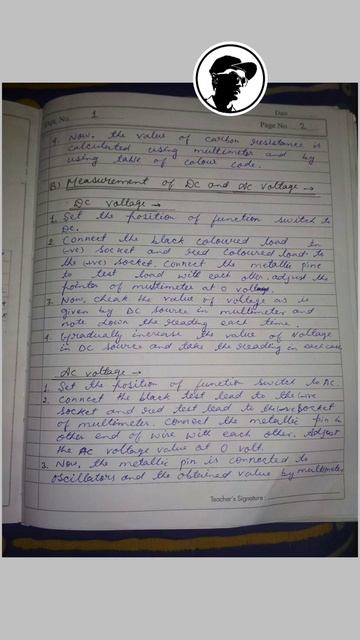 Page No. 1
Date
Page No. 2
4. Now, the value of carbon resistance is
calculated using multimeter and by
using table of colour code.
(B) Measurement of DC and AC voltage →
DC voltage →
1. Set the position of function switch to
DC.
2. Connect the black coloured lead to
(-ve) socket and red coloured lead to
the (+ve) socket connect the metallic pins
to test lead with each other. adjust the
pointer of multimeter at 0 voltage.
3. Now, cheak the value of voltage as is
given by DC source in multimeter and
note down the reading each time.
4. Gradually increase the value of voltage
in DC source and take the reading in each case
AC voltage →
1. Set the position of function switch to AC.
2. Connect the black test lead to the -ve
socket and red test lead to the +ve socket
of multimeter. Connect the metallic pin in
other end of wire with each other. Adjust
the AC voltage value at 0 volt.
3. Now, the metallic pin is connected to
oscillators and the obtained value by multimeter
Teacher's Signature :